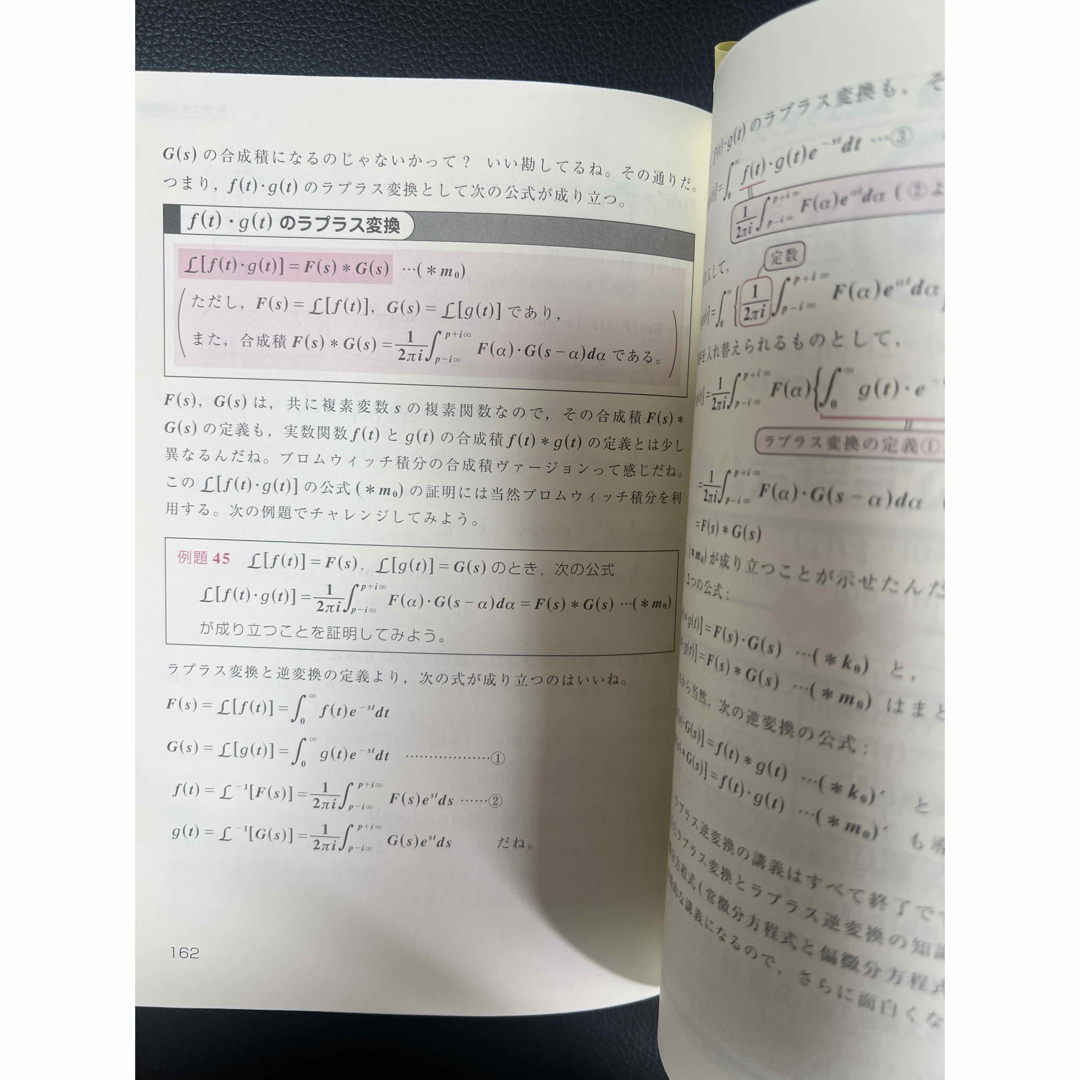 G(s) の合成積になるのじゃないかって? いい勘してるね。その通りだ。
つまり, f(t)・g(t) のラプラス変換として次の公式が成り立つ。
f(t)・g(t) のラプラス変換
ℒ[f(t)・g(t)] = F(s) * G(s) …(*m₀)
ただし, F(s) = ℒ[f(t)], G(s) = ℒ[g(t)] であり,
また, 合成積 F(s) * G(s) = 1/2πi ∫_{p-i∞}^{p+i∞} F(α)・G(s-α)dα である。
F(s), G(s) は, 共に複素変数 s の複素関数なので, その合成積 F(s) *
G(s) の定義も, 実数関数 f(t) と g(t) の合成積 f(t) * g(t) の定義とは少し
異なるんだね。ブロムウィッチ積分の合成積ヴァージョンって感じだね。
この ℒ[f(t)・g(t)] の公式 (*m₀) の証明には当然ブロムウィッチ積分を利
用する。次の例題でチャレンジしてみよう。
例題 45 ℒ[f(t)] = F(s), ℒ[g(t)] = G(s) のとき, 次の公式
ℒ[f(t)・g(t)] = 1/2πi ∫_{p-i∞}^{p+i∞} F(α)・G(s-α)dα = F(s) * G(s) …(*m₀)
が成り立つことを証明してみよう。
ラプラス変換と逆変換の定義より, 次の式が成り立つのはいいね。
F(s) = ℒ[f(t)] = ∫_0^∞ f(t)e^{-st}dt
G(s) = ℒ[g(t)] = ∫_0^∞ g(t)e^{-st}dt ………………①
f(t) = ℒ⁻¹[F(s)] = 1/2πi ∫_{p-i∞}^{p+i∞} F(s)e^{st}ds ……②
g(t) = ℒ⁻¹[G(s)] = 1/2πi ∫_{p-i∞}^{p+i∞} G(s)e^{st}ds だね。
162
f(t)・g(t) のラプラス変換も, そ
= ∫_0^∞ f(t)・g(t)e^{-st}dt …③
1/2πi ∫_{p-i∞}^{p+i∞} F(α)e^{αt}dα (②よ
定数
入して,
= ∫_0^∞ { 1/2πi ∫_{p-i∞}^{p+i∞} F(α)e^{αt}dα
を入れ替えられるものとして,
= 1/2πi ∫_{p-i∞}^{p+i∞} F(α){ ∫_0^∞ g(t)・e
ラプラス変換の定義①
= 1/2πi ∫_{p-i∞}^{p+i∞} F(α)・G(s-α)dα
= F(s) * G(s)
(*m₀) が成り立つことが示せたんだ
2つの公式:
*g(t)] = F(s)・G(s) …(*k₀) と,
・g(t)] = F(s) * G(s) …(*m₀) はまと
から当然, 次の逆変換の公式:
・G(s)] = f(t) * g(t) …(*k₀)′ と
*G(s)] = f(t)・g(t) …(*m₀)′ も導
ラプラス逆変換の講義はすべて終了です
ラプラス変換とラプラス逆変換の知識
方程式 (常微分方程式と偏微分方程式
な講義になるので, さらに面白くな